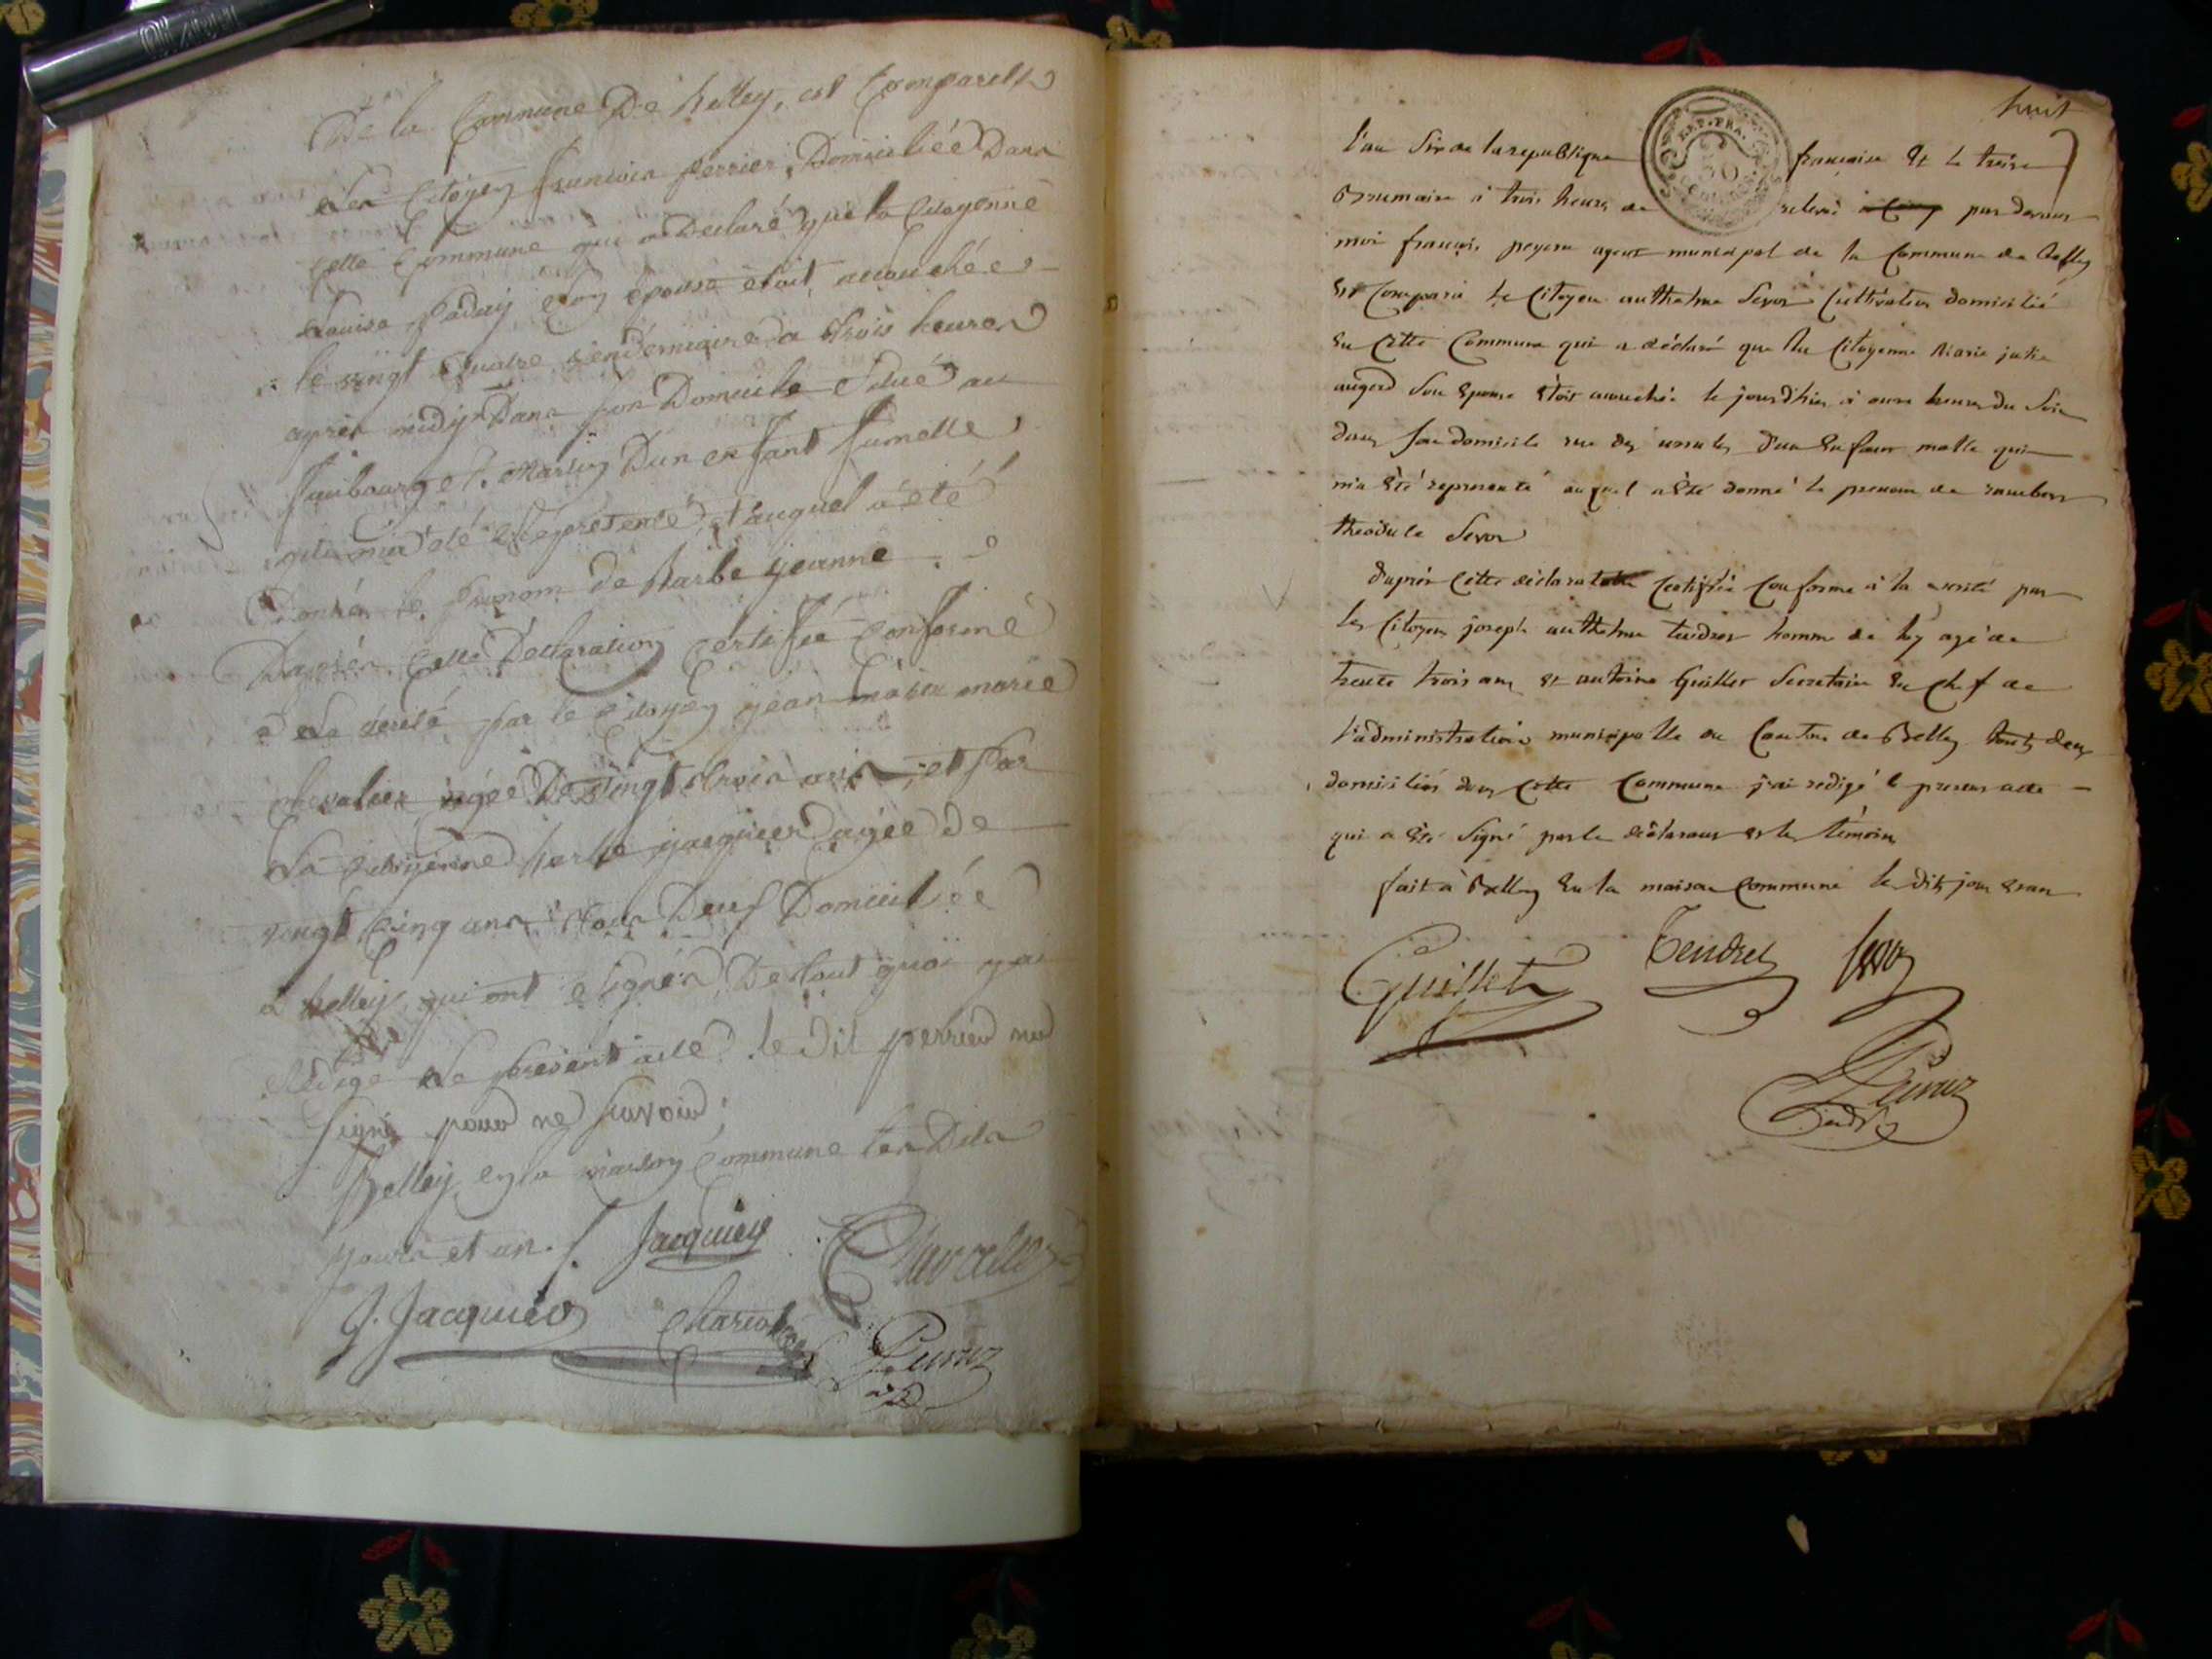 De la Commune De belley, est Comparuts
Les Citoyen francois perrier, Domiciliée Dans
Cette Commune qui a Declaré que la Citoyenne
Louise paduy son Epouse etoit accouchée
le vingt quatre vendémiaire a trois heures
après midy Dans son Domicile situé au
faubourg st. Martin Dun enfant fumelle
qui m'a été représenté, auquel a été
Donnés le prenom de barbe jeanne
Daprés Cette Declaration Certifié Conforme
a la verité par le Citoyen jean marie
Chevalier agée De Vingt trois ans, et par
La Citoyenne barbe jacquier agée de
vingt Cinq ans tous Deux Domiciliée
a belley, qui ont signés, De tout quoi jai
redigé Le present acte. le Dit perrier na
signé pour ne savoir;
belley en la maison Commune les Dits
jours et an.
Jacquier
J. Jacquier
huit
l'an Six de la republique française & le treize
Brumaire à trois heures de relevé par devant
moi françois peyson agent municipal de la Commune de Belley
est Comparu le Citoyen anthelme Sevoz Cultivateur domicilié
en Cette Commune qui a déclaré que la Citoyenne Marie
son Epouse étoit accouchée le jourd'hier à onze heures du Soir
dans son domicile rue des d'un Enfant malle qui
m'a été représenté auquel a été donné le prenom de
theodule Sevoz
d'après Cette déclaration Certifiée Conforme à la verité par
les Citoyens joseph anthelme tendret homme de loy agé de
trente trois ans & antoine Guillet Secretaire En Chef de
l'administration municipalle du Canton de Belley touts deux
domiciliés dans Cette Commune j'ai redigé le present acte
qui a été Signé par le déclarant & les témoins
fait à Belley En la maison Commune les dits jour & an
Guillet Tendret Sevoz
REP. FRA.
50